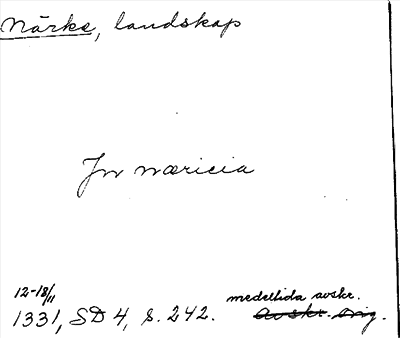 Närke, landskap
Jn næricia
12-18/11 medeltida avskr.
1331, SD 4, s. 242. avskr. orig.